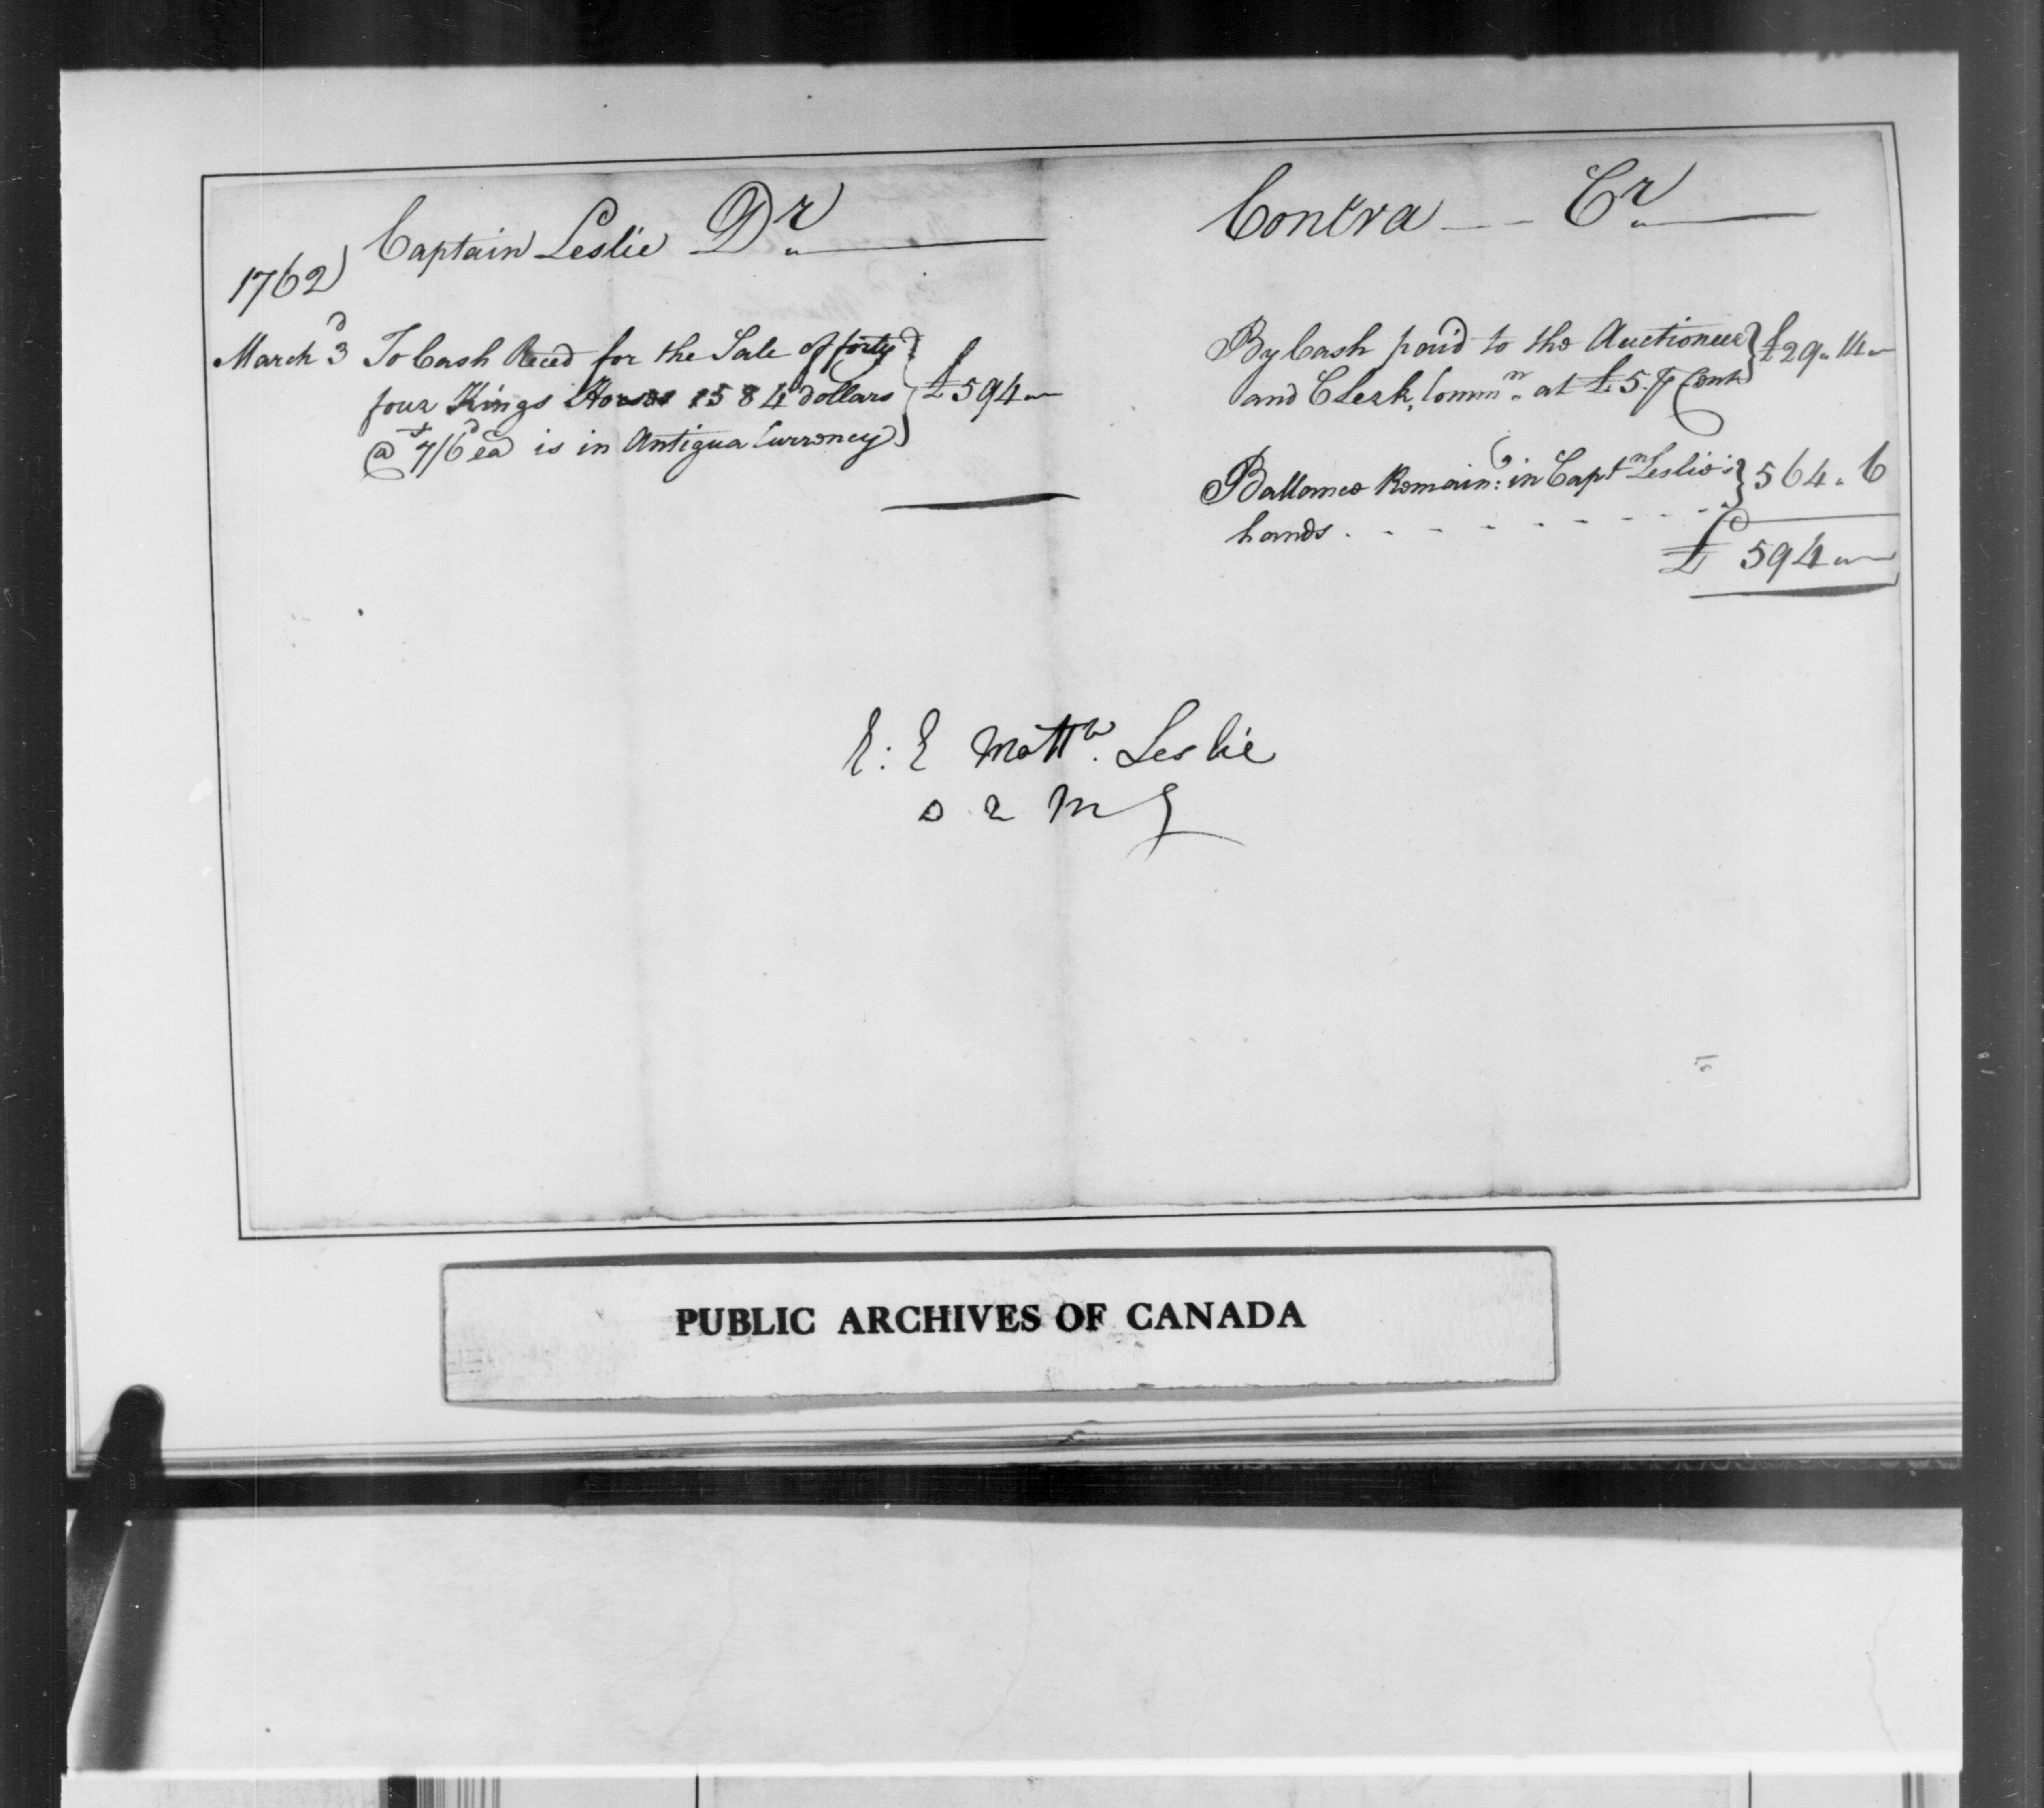 Captain Leslie Dr
1762
March 3d To Cash Reced for the Sale of forty
four Kings Horses 1584 dollars
@ 7s/6d ea is in Antigua Currency } £594 "
Contra Cr
By Cash paid to the Auctioneer
and Clerk, Commn. at £5 ⅌ Cent } £29 " 14 "
Ballance Remain: in Captn Leslie's } 564 " 6
hands
£ 594 "
E: E Mattw. Leslie
D Q M G
PUBLIC ARCHIVES OF CANADA